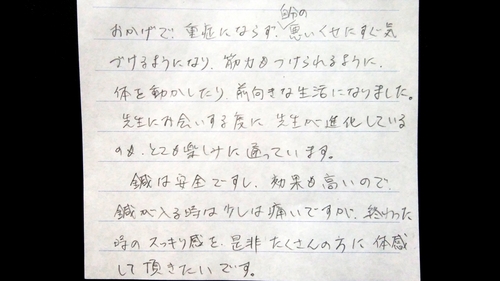 おかげで、重症にならず、自分の悪いくせにすぐ気
づけるようになり、筋力もつけられるように、
体を動かしたり、前向きな生活になりました。
先生にお会いする度に、先生が進化している
のも、とても楽しみに通っています。
鍼は安全ですし、効果も高いので、
鍼が入る時は少しは痛いですが、終わった
時のスッキリ感を、是非たくさんの方に体感
して頂きたいです。